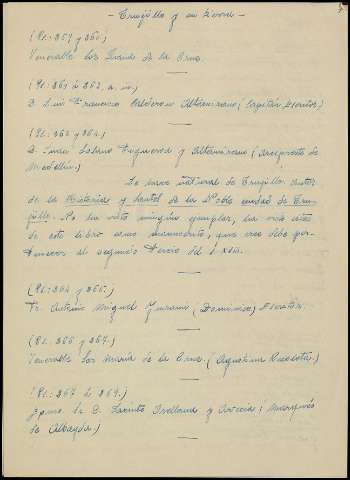 - Trujillo y su
(Pl.: 359 y 360.)
Venerable Sor
de la Cruz.
(Pl. 361 á 362,
D. Luis Francisco Calderon Altamirano (Capitán, Escritor.)
(Pl. 363 y 364.)
D. Juan Solano Figueroa y Altamirano (Arcipreste de
Medellin.)
Le hace natural de Trujillo autor
de la Historia y Santos de la Noble ciudad de Tru-
jillo. No ha visto ningún ejemplar, ha visto citas
de este libro como manuscrito, que cree debe per-
tenecer al segundo tercio del s. XVII.
(Pl.: 364 y 365.)
Fr. Antonio Miguel
(Dominico) Escritor.
(Pl. 366 y 367.)
Venerable Sor María de la Cruz. (Agustina Recoleta.)
(Pl.: 367 á 369.)
D. Jacinto Orellana y
(Marqués
de Albayda.)